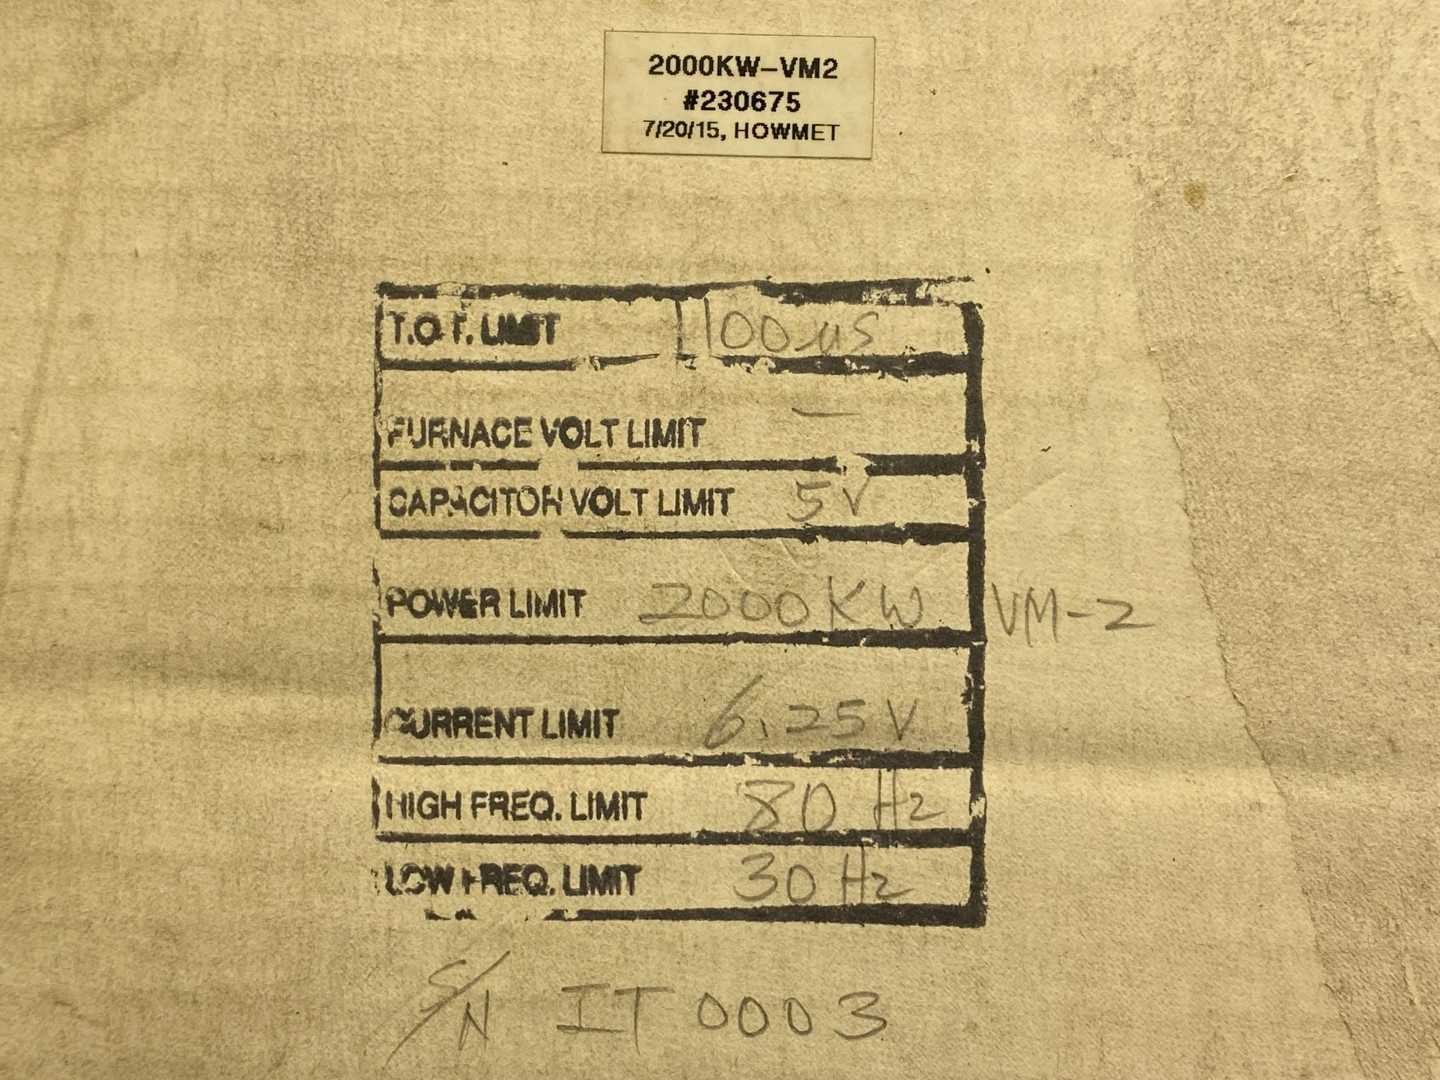 2000KW–VM2
#230675
7/20/15, HOWMET
T.O.T. LIMIT 1100µs
FURNACE VOLT LIMIT —
CAPACITOR VOLT LIMIT 5V
POWER LIMIT 2000KW VM-2
CURRENT LIMIT 6.25V
HIGH FREQ. LIMIT 80 Hz
LOW FREQ. LIMIT 30 Hz
S/N IT0003